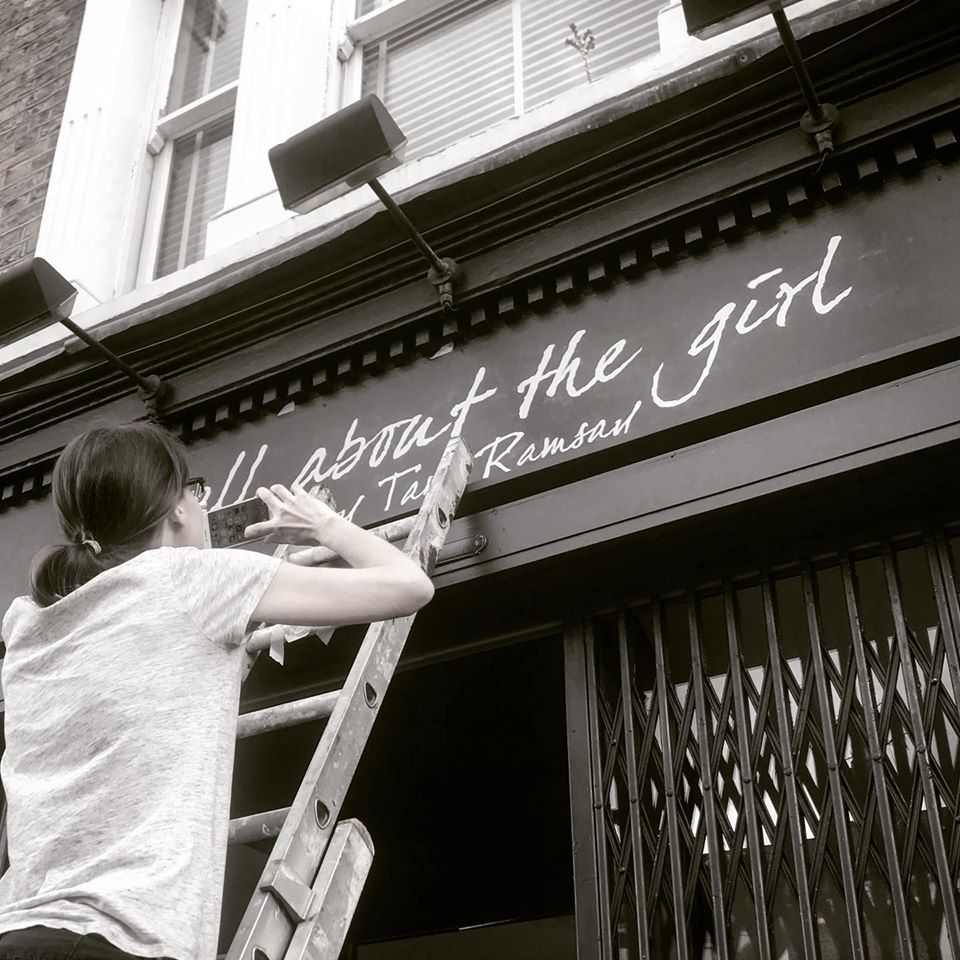 all about the girl
Ramsay